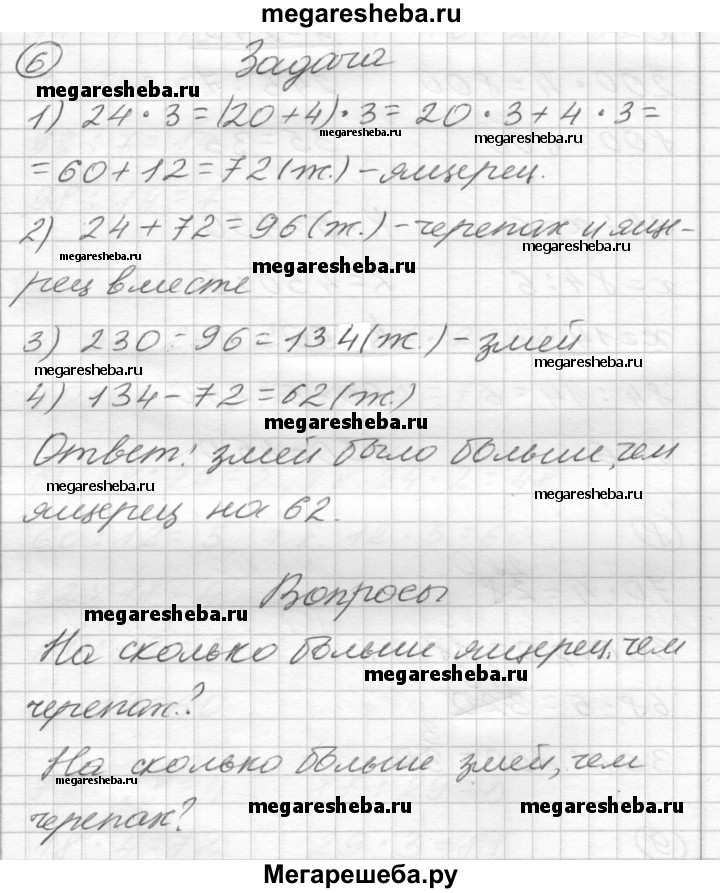 megaresheba.ru
6 Задача
megaresheba.ru
1) 24 · 3 = (20 + 4) · 3 = 20 · 3 + 4 · 3 =
megaresheba.ru
megaresheba.ru
= 60 + 12 = 72 (ж.) – ящерец.
2) 24 + 72 = 96 (ж.) – черепах и яще-
megaresheba.ru
megaresheba.ru
megaresheba.ru
рец вместе
3) 230 - 96 = 134 (ж.) – змей
megaresheba.ru
megaresheba.ru
4) 134 – 72 = 62 (ж.)
megaresheba.ru
Ответ: змей было больше, чем
megaresheba.ru
megaresheba.ru
ящерец на 62.
Вопросы
megaresheba.ru
На сколько больше ящерец, чем
megaresheba.ru
черепах?
На сколько больше змей, чем
megaresheba.ru
megaresheba.ru
megaresheba.ru
черепах?
Мегарешеба.ру